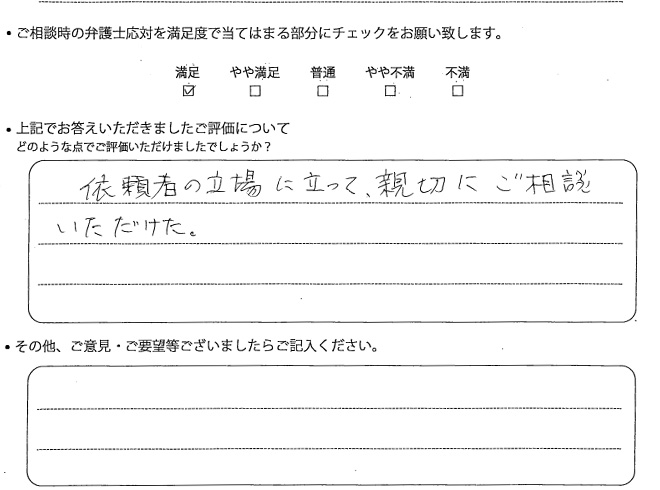 ・ご相談時の弁護士応対を満足度で当てはまる部分にチェックをお願い致します。
満足 やや満足 普通 やや不満 不満
☑ □ □ □ □
・上記でお答えいただきましたご評価について
どのような点でご評価いただけましたでしょうか？
依頼者の立場に立って、親切にご相談
いただけた。
・その他、ご意見・ご要望等ございましたらご記入ください。